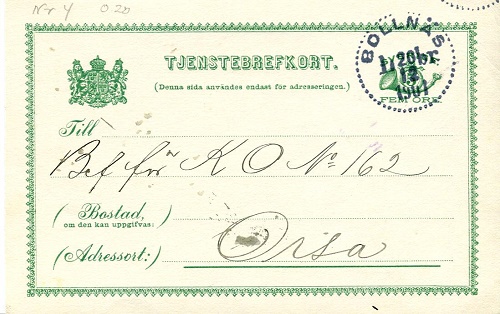 Nr 4 O 20
BOLLNÄS
12
1901
FEM ÖRE
TJENSTEBREFKORT.
(Denna sida användes endast för adresseringen.)
Till
Bef för K O No 162
(Bostad,
om den kan uppgifvas:)
Orsa
(Adressort:)